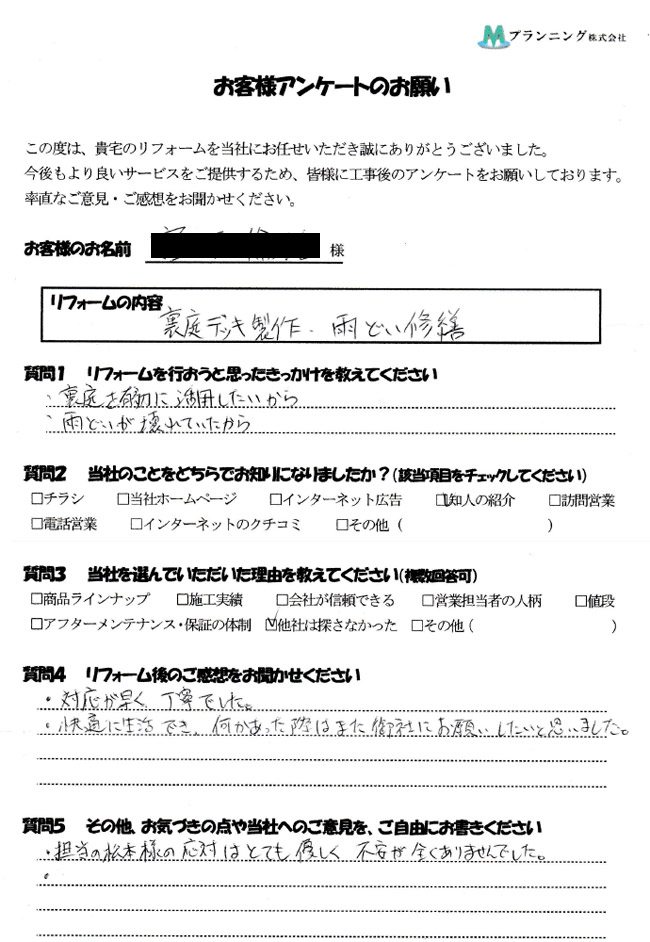 M プランニング株式会社
お客様アンケートのお願い
この度は、貴宅のリフォームを当社にお任せいただき誠にありがとうございました。
今後もより良いサービスをご提供するため、皆様に工事後のアンケートをお願いしております。
率直なご意見・ご感想をお聞かせください。
お客様のお名前 様
リフォームの内容
裏庭デッキ製作・雨どい修繕
質問1 リフォームを行おうと思ったきっかけを教えてください
・裏庭を有効に活用したいから
・雨どいが壊れていたから
質問2 当社のことをどちらでお知りになりましたか？(該当項目をチェックしてください)
□チラシ □当社ホームページ □インターネット広告 ☑知人の紹介 □訪問営業
□電話営業 □インターネットのクチコミ □その他（ ）
質問3 当社を選んでいただいた理由を教えてください(複数回答可)
□商品ラインナップ □施工実績 □会社が信頼できる □営業担当者の人柄 □値段
□アフターメンテナンス・保証の体制 ☑他社は探さなかった □その他（ ）
質問4 リフォーム後のご感想をお聞かせください
・対応が早く、丁寧でした。
・快適に生活でき、何かあった際はまた御社にお願いしたいと思いました。
質問5 その他、お気づきの点や当社へのご意見を、ご自由にお書きください
・担当の松本様の応対はとても優しく 不安が全くありませんでした。